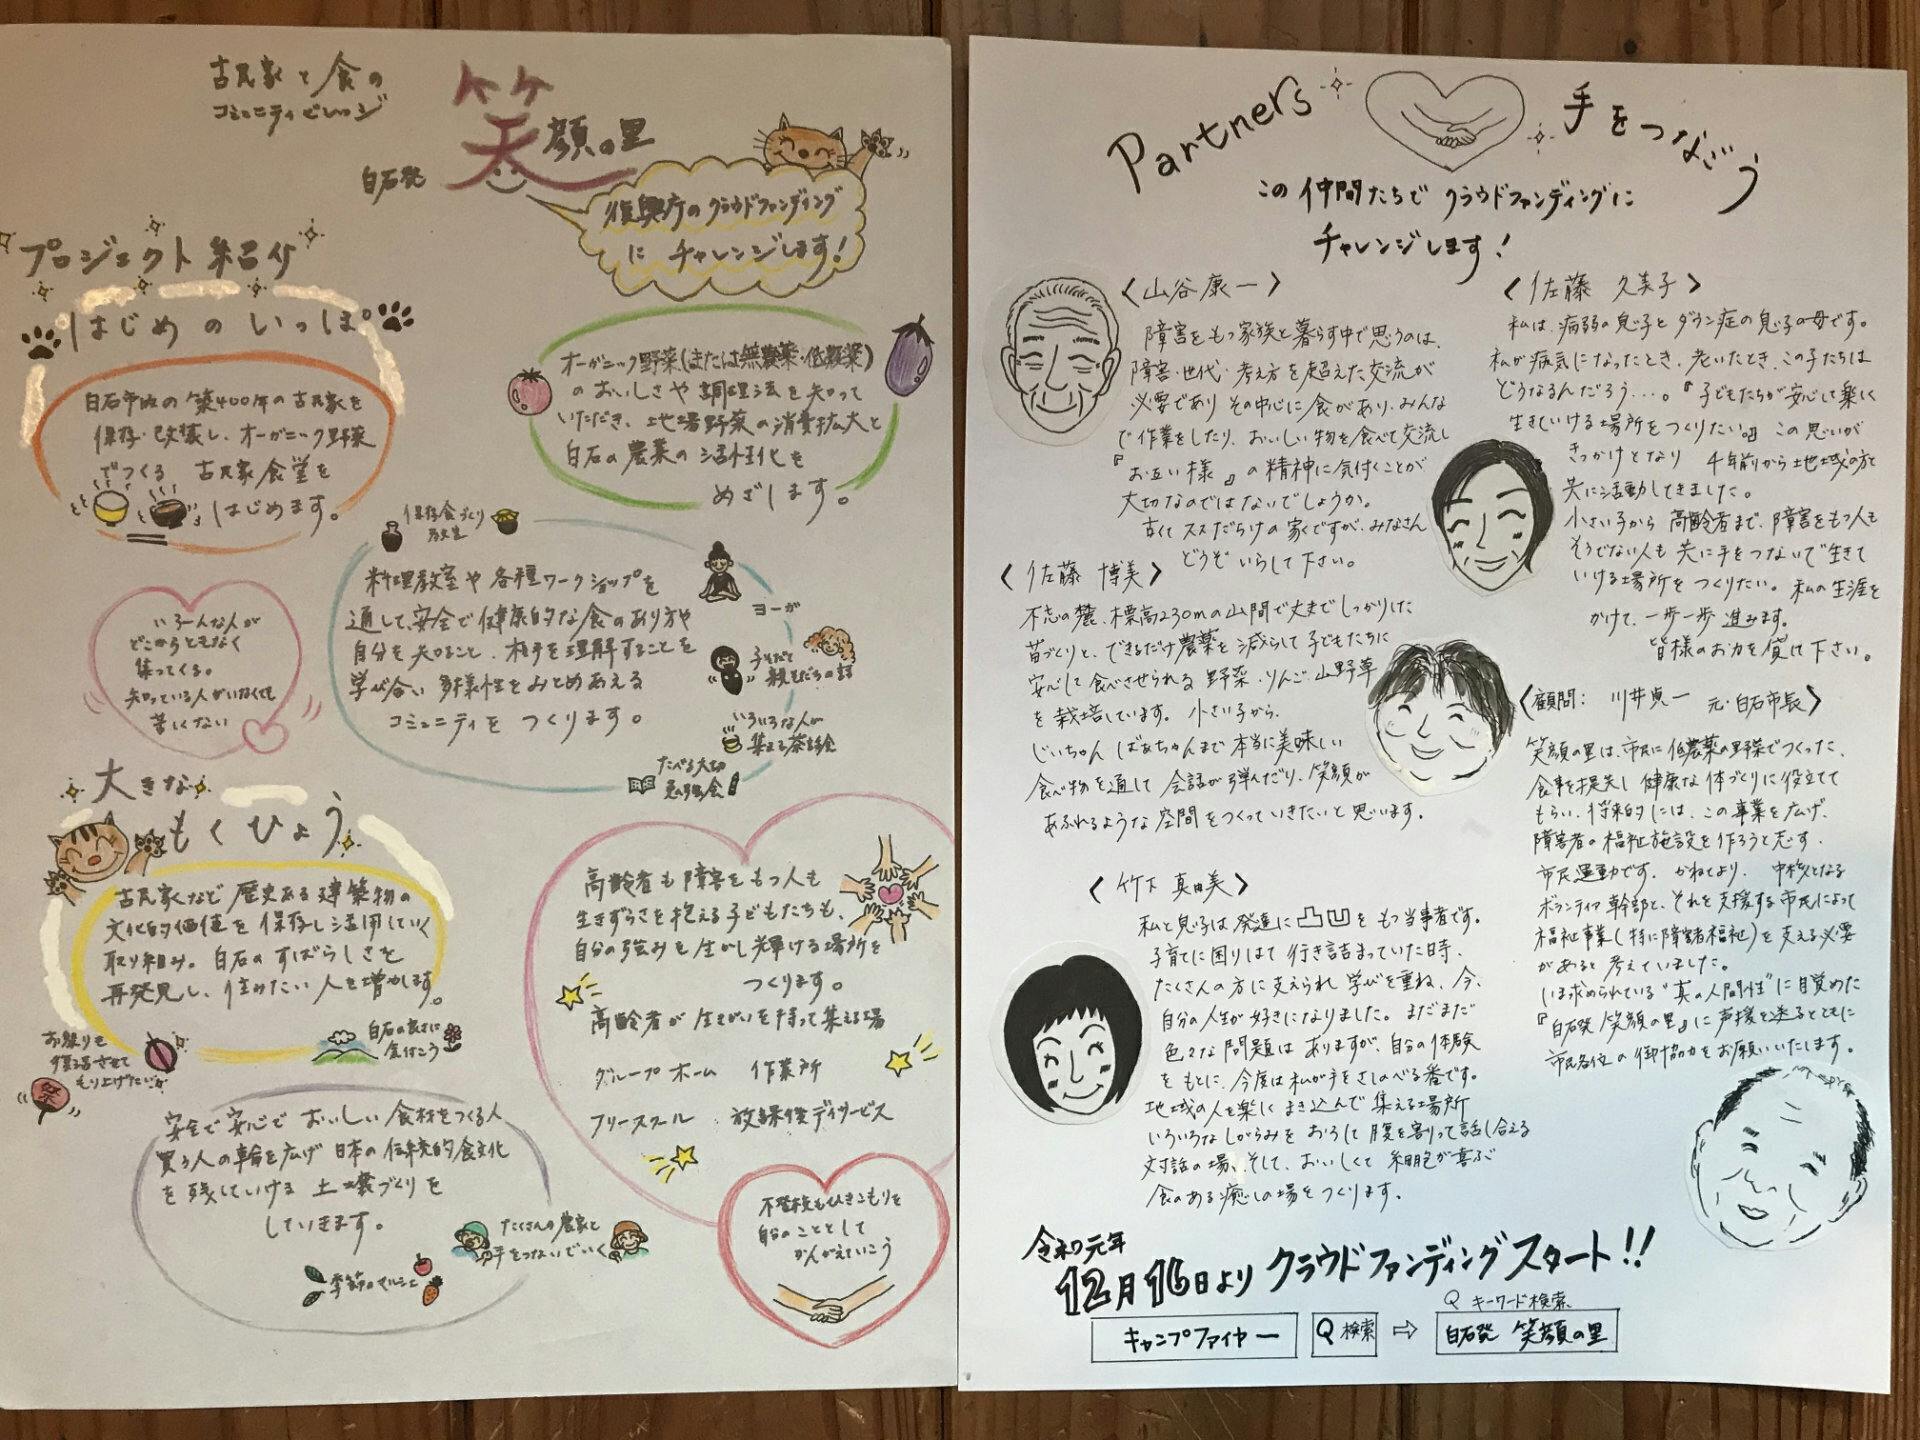 古民家と食の
コミュニティビレッジ
白石発
笑顔の里
復興庁のクラウドファンディング
に チャレンジします!
プロジェクト紹介
はじめの いっぽ
白石市内の築400年の古民家を
保存・改装し、オーガニック野菜
でつくる 古民家食堂を
はじめます。
オーガニック野菜(または無農薬・低農薬)
のおいしさや 調理法を知って
いただき、地場野菜の消費拡大と
白石の農業の活性化を
めざします。
保存食づくり
教室
料理教室や各種ワークショップを
通して、安全で健康的な食のあり方や
自分を知ること、相手を理解することを
学び合い 多様性をみとめあえる
コミュニティを つくります。
ヨーガ
子そだて
親そだちの話
いろいろな人が
集える茶話会
たべる大切
勉強会
いろーんな人が
どこからともなく
集ってくる。
知っている人がいなくても
苦しくない
大きな
もくひょう
古民家など 歴史ある建築物の
文化的価値を 保存し活用していく
取り組み。白石のすばらしさを
再発見し、住みたい人を増やします。
お祭りを
復活させて
もり上げたい
祭
白石の良さに
気付こう
高齢者も障害をもつ人も
生きずらさを抱える子どもたちも、
自分の強みを生かし輝ける場所を
つくります。
高齢者が 生きがいを持って集える場
グループホーム 作業所
フリースクール 放課後デイサービス
安全で安心で おいしい食材をつくる人
買う人の輪を広げ 日本の伝統的食文化
を残していける 土壌づくりを
していきます。
たくさんの農家と
手をつないでいく
季節のマルシェ
不登校もひきこもりも
自分のこととして
かんがえていこう
Partners
手をつなごう
この仲間たちで クラウドファンディングに
チャレンジします!
〈山谷康一〉
障害をもつ家族と暮らす中で思うのは、
障害・世代・考え方を超えた交流が
必要であり その中心に食があり、みんな
で作業をしたり、おいしい物を食べて交流し
『お互い様』の精神に気付くことが
大切なのではないでしょうか。
古くてススだらけの家ですが、みなさん
どうぞいらして下さい。
〈佐藤 博美〉
不忘の麓、標高230mの山間で丈夫でしっかりした
苗づくりと、できるだけ農薬を減らして子どもたちに
安心して食べさせられる 野菜・りんご・山野草
を栽培しています。小さい子から、
じいちゃん ばあちゃんまで本当に美味しい
食べ物を通して 会話が弾んだり、笑顔が
あふれるような空間をつくっていきたいと思います。
〈竹下 真由美〉
私と息子は発達に凸凹をもつ当事者です。
子育てに困りはて 行き詰まっていた時、
たくさんの方に支えられ学びを重ね、今、
自分の人生が好きになりました。まだまだ
色々な問題はありますが、自分の体験
をもとに、今度は私が手をさしのべる番です。
地域の人を楽しくまき込んで 集える場所
いろいろなしがらみを おろして腹を割って話し合える
対話の場、そして、おいしくて細胞が喜ぶ
食のある癒しの場をつくります。
〈佐藤 久美子〉
私は、病弱の息子とダウン症の息子の母です。
私が病気になったとき、老いたとき、この子たちは
どうなるんだろう…。『子どもたちが安心して楽しく
生きていける場所をつくりたい。』この思いが
きっかけとなり 4年前から地域の方と
共に活動してきました。
小さい子から高齢者まで、障害をもつ人も
そうでない人も 共に手をつないで生きて
いける場所をつくりたい。私の生涯を
かけて、一歩一歩 進みます。
皆様のお力を貸して下さい。
〈顧問: 川井貞一 元・白石市長〉
笑顔の里は、市民に低農薬の野菜でつくった、
食事を提供し健康な体づくりに役立てて
もらい、将来的には、この事業を広げ、
障害者の福祉施設を作ろうと志す、
市民運動です。かねてより、中核となる
ボランティア幹部と、それを支援する市民によって
福祉事業(特に障害者福祉)を支える必要
があると考えていました。
いま求められている“真の人間性”に目覚めた
『白石発 笑顔の里』に声援を送るとともに
市民各位の御協力をお願いいたします。
令和元年
12月16日より クラウドファンディングスタート!!
キャンプファイヤー
Q 検索
⇨
Q キーワード検索
白石発 笑顔の里